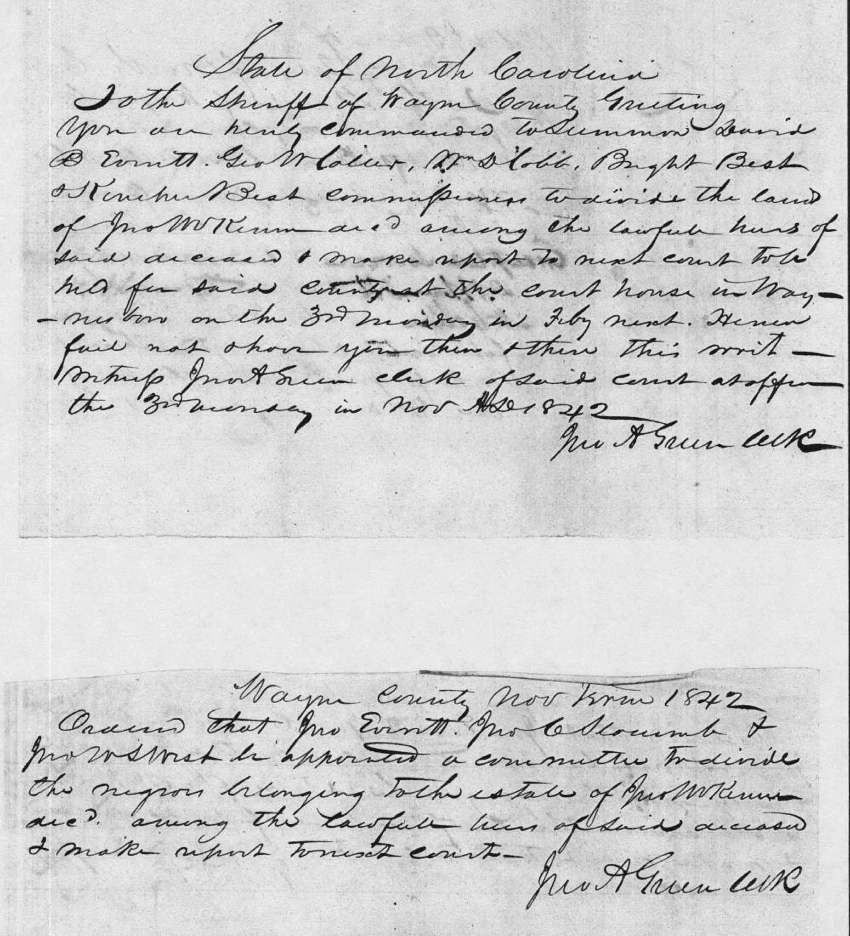 State of North Carolina
To the Sheriff of Wayne County Greeting
You are hereby commanded to Summon David
B Everitt. Geo W Collier, Wm D Cobb, Bright Best
& Kincher Best commissioners to divide the land
of Jno McKinne decd among the lawfull heirs of
said deceased & make report to next court to be
held for said county at the court house in Way-
-nesboro on the 3rd monday in Feby next. Herein
fail not & have you then & there this writ -
witness Jno A Green clerk of said court at office
the 3rd monday in Nov AD 1842
Jno A Green Clk
Wayne County Nov Term 1842
Ordered that Jno Everitt. Jno C Slocumb &
Jno W S West be appointed a committee to divide
the negroes belonging to the estate of Jno McKinne
decd. among the lawfull heirs of said deceased
& make report to next court -
Jno A Green Clk